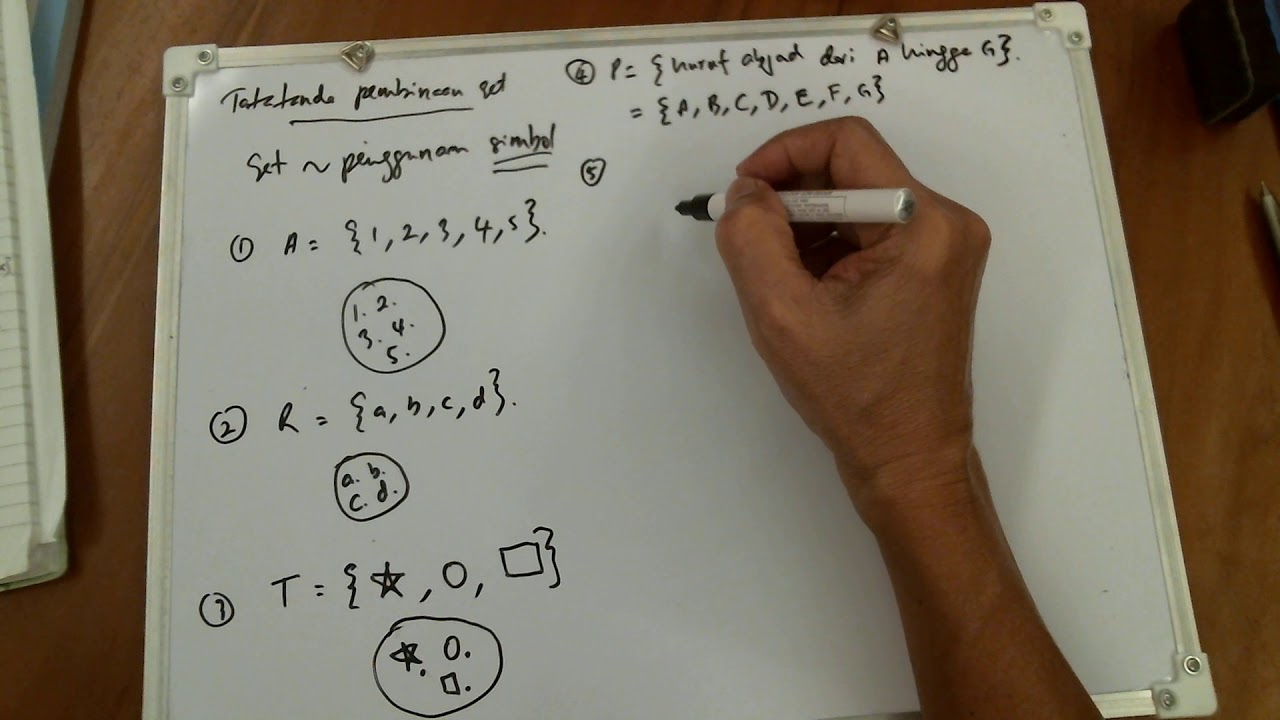 Tatatanda pembinaan set
Set ~ penggunaan simbol
① A = {1, 2, 3, 4, 5}.
1. 2.
3. 4.
5.
② R = {a, b, c, d}.
a. b.
c. d.
③ T = {☆, ○, □}
☆. ○.
□.
④ P = {huruf abjad dari A hingga G}.
= {A, B, C, D, E, F, G}
⑤